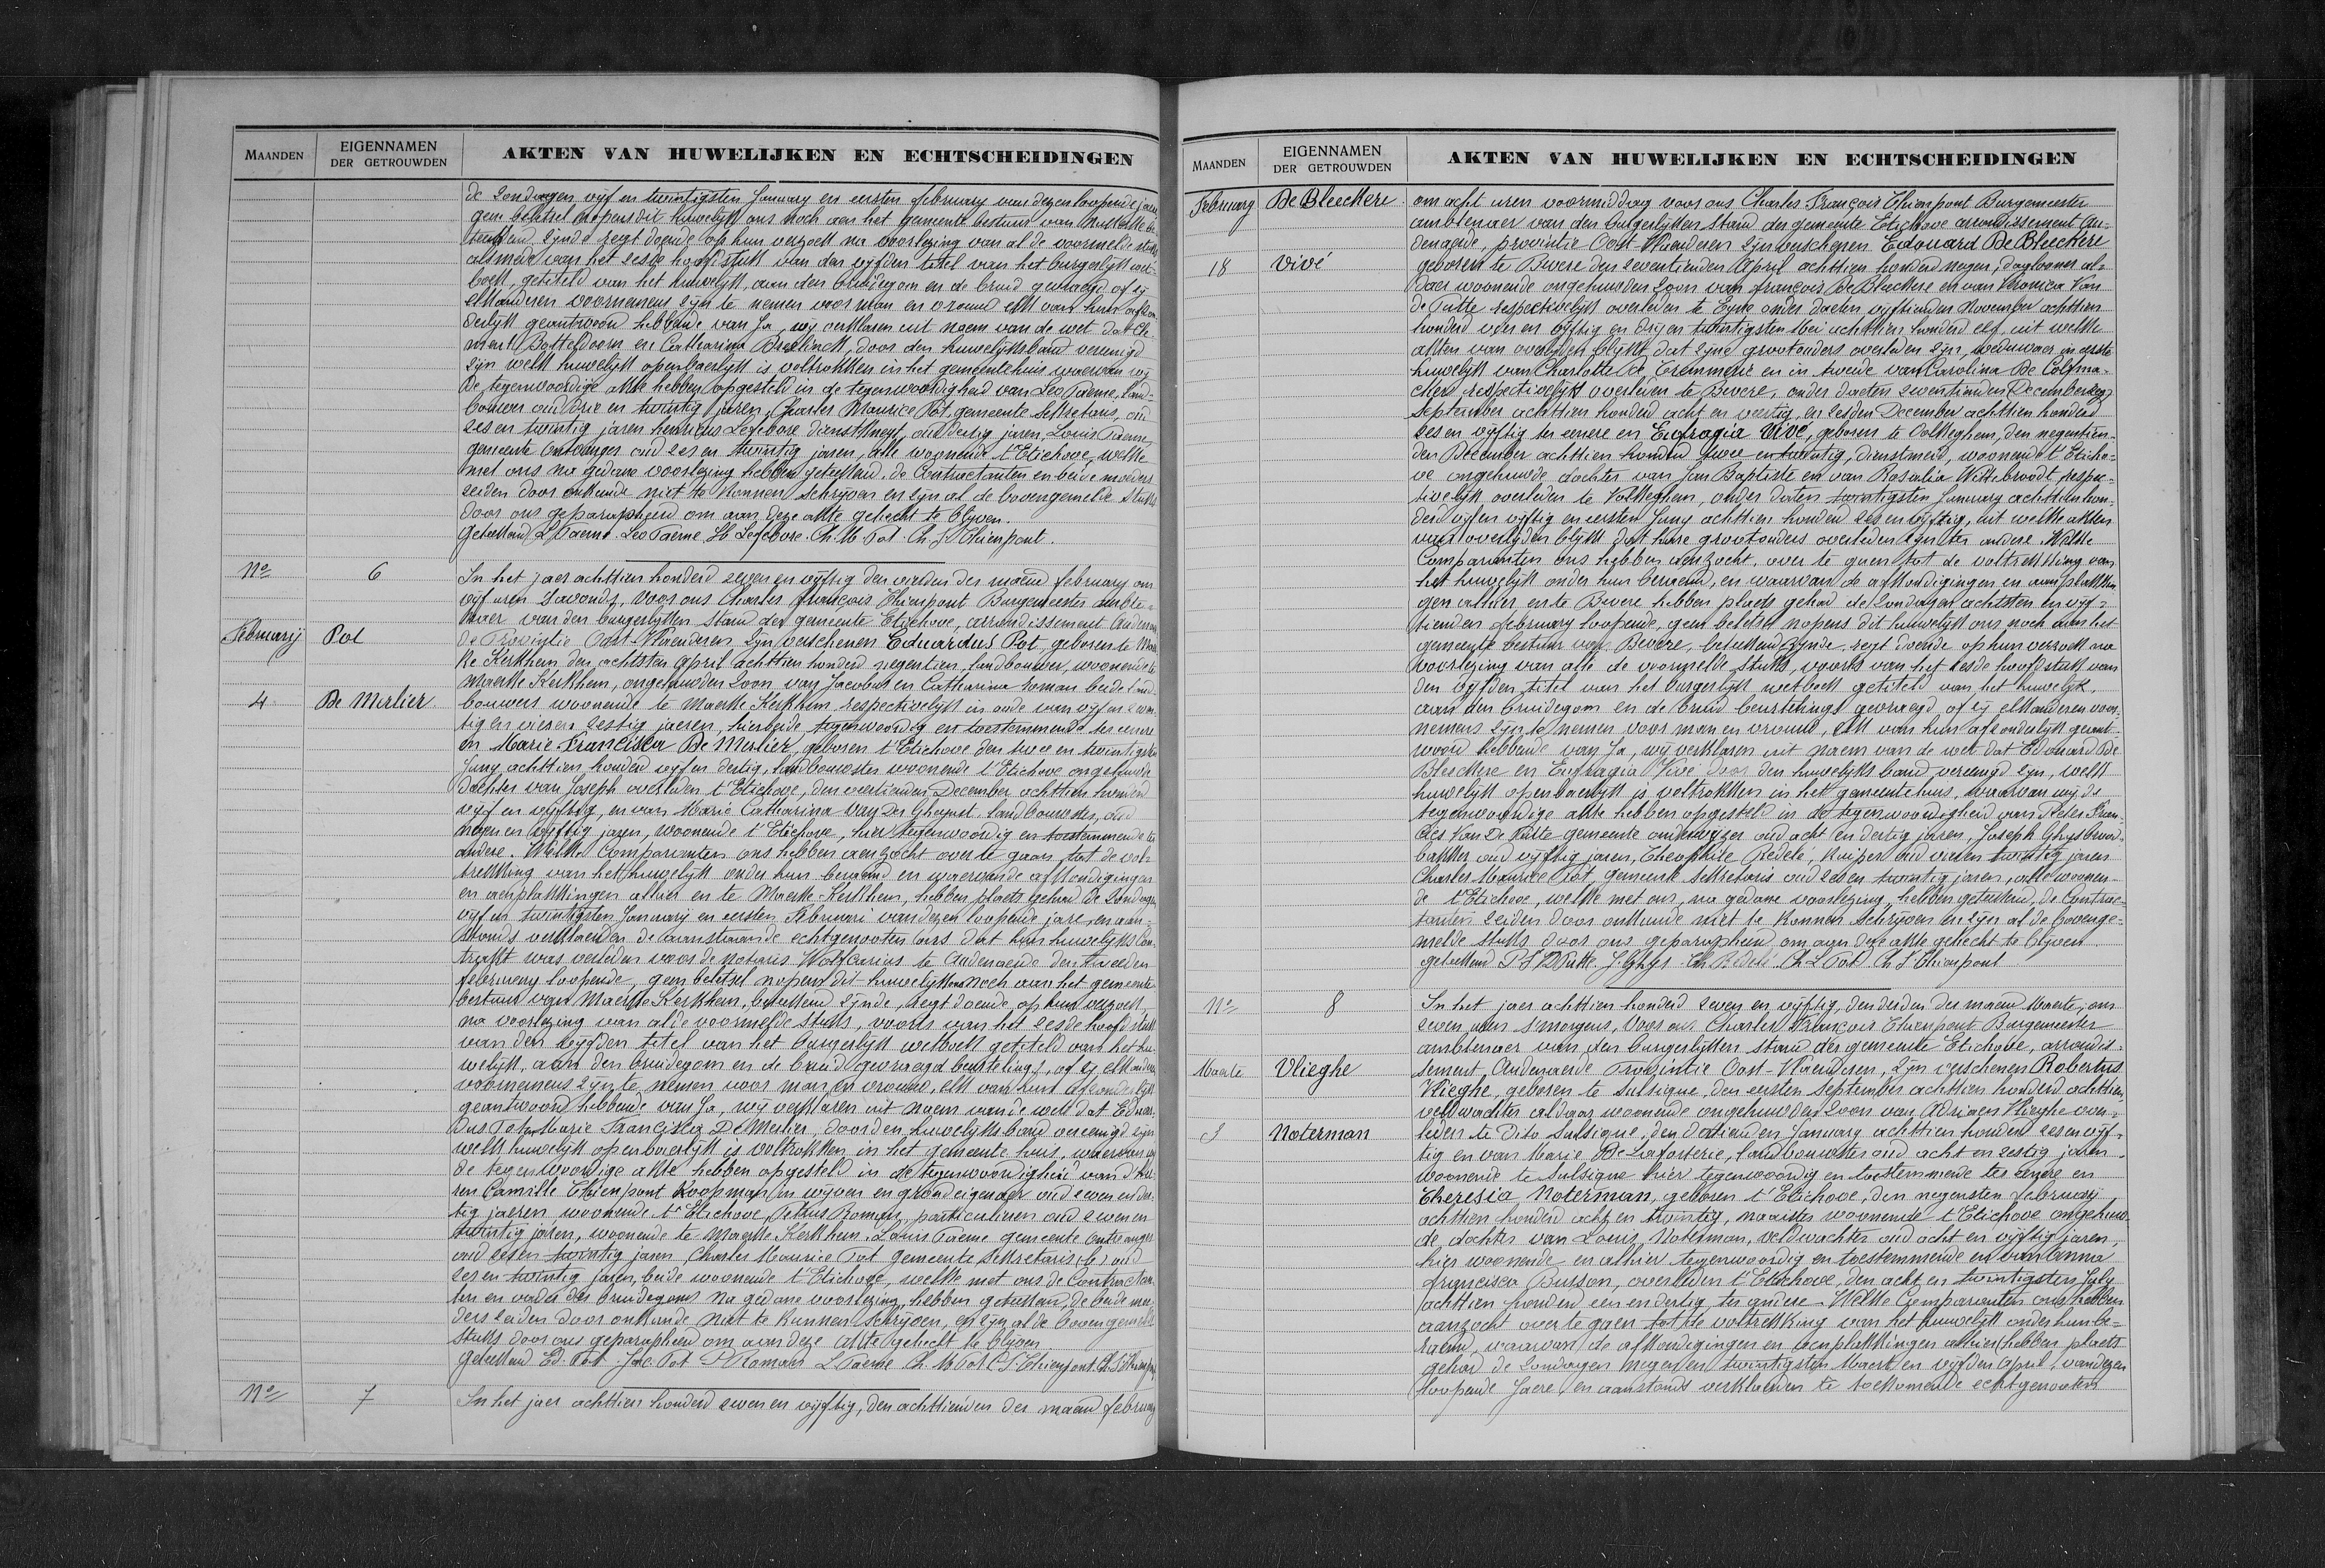 MAANDEN
EIGENNAMEN DER GETROUWDEN
AKTEN VAN HUWELIJKEN EN ECHTSCHEIDINGEN
de zondagen vijf en twintigsten January en eersten february van dezen loopende jare
geen beletsel nopens dit huwelijk ons noch aen het gemeente bestuur van
zynde regt doende op hun verzoek na voorlezing van al de voormelde stuks
alsmede van het zesde hoofdstuk van den vijfden titel van het burgerlijk wet-
boek, getiteld van het huwelijk, aan den bruidegom en de bruid gevraagd of zij
elkanderen voornemens zijn te nemen voor man en vrouw elk van hun afzon
derlijk geantwoord hebbende van Ja, wij verklaren uit naem van de wet dat Cle-
ment Botteldoorn en Catharina door den huwelijksband vereenigd
zijn welk huwelijk openbaerlijk is voltrokken in het gemeentehuis waervan wij
de tegenwoordige akte hebben opgesteld in de tegenwoordigheid van Leo Taerne, land-
bouwer oud drie en twintig jaren, Charles Maurice Pot, gemeente Sekretaris, oud
zes en twintig jaren henricus Lefebvre dienstknegt, oud dertig jaren, Louis Taerne
gemeente Ontvanger oud zes en twintig jaren, alle woonende t'Etichove, welke
met ons na gedane voorlezing hebben geteekend, de Contractanten en beide moeders
zeiden door onkunde niet te konnen schrijven en zijn al de bovengemelde stuks
door ons geparapheerd om aan deze akte gehecht te blijven.
Geteekend L Taerne. Leo Taerne. H Lefebvre. Ch. M. Pot. Ch. F. Thienpont.
No 6
In het jaer achttien honderd zeven en vijftig den vierden der maend february om
vijf uren s'avonds, voor ons Charles François Thienpont Burgemeester ambte-
naer van den burgerlijken stand der gemeente Etichove, arrondissement Audenaer
Februarij Pot
de Provintie Oost-Vlaenderen zijn verschenen Eduardus Pot, geboren te Maer
ke Kerkhem den achtsten april achttien honderd negentien, landbouwer, woonende te
Maerke Kerkhem, ongehuwden zoon van Jacobus en Catharina Roman beide land-
4 De Merlier
bouwers woonende te Maerke Kerkhem respectivelijk in oude van vijf en zeven-
tig en vier en zestig jaeren, hier beide tegenwoordig en toestemmende ter eenre
en Marie Francisca De Merlier, geboren t'Etichove den twee en twintigsten
Juny achttien honderd vijf en dertig, landbouwster woonende t'Etichove ongehuwde
dochter van Joseph overleden t'Etichove, den veertienden December achttien honderd
vijf en vijftig, en van Marie Catharina Van Der Gheynst, landbouwster, oud
negen en vijftig jaren, woonende t'Etichove, hier tegenwoordig en toestemmende ter
andere. Welke Comparanten ons hebben aenzocht over te gaan tot de vol-
trekking van het huwelijk onder hun beraemd en waervan de afkondigingen
en aenplakkingen alhier en te Maerke-Kerkhem, hebben plaets gehad de zondagen
vijf en twintigsten January en eersten Februari van dezen loopende jare, en aan-
stonds verklaerden de aanstaande echtgenooten ons dat hun huwelijks Con-
trakt was verleden voor de notaris te Audenaerde den tweeden
february loopende, geen beletsel nopens dit huwelijk ons noch aan het gemeente
bestuur van Maerke Kerkhem, bekend zijnde, regt doende op hun verzoek,
na voorlezing van al de voormelde stuks, voorts van het zesde hoofdstuk
van den vijfden titel van het burgerlijk wetboek getiteld van het hu-
welijk, aan den bruidegom en de bruid gevraagd beurtelings, of zij elkandere
voornemens zijn te nemen voor man en vrouw, elk van hun afzonderlijk
geantwoord hebbende van Ja, wij verklaren uit naem van de wet dat Eduar-
dus Pot en Marie Francisca De Merlier, door den huwelijksband vereenigd zijn
welk huwelijk openbaerlijk is voltrokken in het gemeente huis, waervan wij
de tegenwoordige akte hebben opgesteld in de tegenwoordigheid van d'hee-
ren Camille Thienpont koopman in wijnen en grondeigenaer oud zeven en der-
tig jaeren woonende t'Etichove, Petrus Roman, particulieren oud zeven en
twintig jaren, woonende te Maerke Kerkhem, Louis Taerne gemeente Ontvanger
oud zes en twintig jaren Charles Maurice Pot Gemeente Sekretaris oud
zes en twintig jaren, beide woonende t'Etichove, welke met ons de Contractan-
ten en vader des bruidegoms na gedane voorlezing, hebben geteekend, de beide moe-
ders zeiden door onkunde niet te kunnen schrijven, en zijn al de bovengemelde
stuks door ons geparapheerd om aan deze akte gehecht te blijven.
Geteekend Ed. Pot. Jac. Pot P Roman L Taerne Ch. M Pot C. Thienpont. Ch. F. Thienpont
No 7
In het jaer achttien honderd zeven en vijftig, den achttienden der maend february
MAANDEN
EIGENNAMEN DER GETROUWDEN
AKTEN VAN HUWELIJKEN EN ECHTSCHEIDINGEN
February De Bleeckere
om acht uren voormiddag voor ons Charles François Thienpont Burgemeester
ambtenaer van den burgerlijken stand der gemeente Etichove arrondissement Au-
denaerde, provintie Oost Vlaenderen zijn verschenen Edouard De Bleeckere
18 Vivé
geboren te Bevere den zeventienden April achttien honderd negen, dagloner al-
daer woonende ongehuwden zoon van françois De Bleeckere en van Veronica Van
de Putte respectivelijk overleden te Eyne onder daeten vijftienden November achttien
honderd vier en vijftig en drij en twintigsten Mei achttien honderd elf, uit welke
akten van overlijden blijkt dat zijne grootouders overleden zijn, weduwaer in eerste
huwelijk van Charlotte de en in tweede van Carolina De
respectivelijk overleden te Bevere, onder daeten zeventienden (December)
September achttien honderd acht en veertig, en zesden December achttien honderd
zes en vijftig ter eenere en Eufragia Vivé, geboren te Volkeghem, den negentien-
den December achttien honderd twee en twintig, dienstmeid, woonende t'Eticho-
ve ongehuwde dochter van Jan Baptiste en van Rosalia Wittebroodt, respec-
tivelijk overleden te Volkeghem, onder daten twintigsten January achttien hon-
derd vijf en vijftig en eersten Juny achttien honderd zes en vijftig, uit welke akten
van overlijden blijkt dat hare grootouders overleden zijn ter andere Welke
Comparanten ons hebben aenzocht, over te gaen tot de voltrekking van
het huwelijk onder hun beraemd, en waarvan de afkondigingen en aanplakkin
gen alhier en te Bevere hebben plaets gehad de zondagen achtsten en vijf-
tienden february loopende, geen beletsel nopens dit huwelijk ons noch aan het
gemeente bestuur van Bevere, bekend zijnde, regt doende op hun verzoek na
voorlezing van alle de voormelde stuks, voorts van het zesde hoofdstuk van
den vijfden titel van het burgerlijk wetboek getiteld van het huwelijk.
aan den bruidegom en de bruid beurtelings gevraegd, of zij elkanderen voor-
nemens zijn te nemen voor man en vrouw, elk van hun afzonderlijk geant-
woord hebbende van Ja, wij verklaren uit naem van de wet dat Edouard De
Bleeckere en Eufragia Vivé door den huwelijks band vereenigd zijn, welk
huwelijk openbaerlijk is voltrokken in het gemeentehuis, waarvan wij de
tegenwoordige akte hebben opgesteld in de tegenwoordigheid van Peter Fran-
cies Van De Putte gemeente onderwijzer oud acht en dertig jaren, Joseph Ghys brood-
bakker oud vijftig jaren, Theophile Redelé, kuiper oud vier en twintig jaren
Charles Maurice Pot, gemeente sekretaris oud zes en twintig jaren, alle woonen-
de t'Etichove, welke met ons, na gedane voorlezing, hebben geteekend, de Contrac-
tanten zeiden door onkunde niet te konnen schrijven en zijn al de bovenge-
melde stuks door ons geparapheerd om aan deze akte gehecht te blijven
geteekend P. F. VDPutte. J. Ghys. Th. Redelé. Ch. Pot Ch F Thienpont
No 8
In het jaer achttien honderd zeven en vijftig, den derden der maend Maerte, om
zeven uren s'morgens, voor ons Charles François Thienpont Burgemeester
ambtenaer van den burgerlijken stand der gemeente Etichove, arrondis-
Maarte Vlieghe
sement, Audenaerde Provintie Oost-Vlaenderen, zijn verschenen Robertus
Vlieghe, geboren te Sulsique, den eersten September achttien honderd achttien,
veldwachter aldaar woonende ongehuwden zoon van Adriaen Vlieghe over-
3 Noterman
leden te Dito Sulsique, den January achttien honderd zes en vijf-
tig en van Marie De landbouwster oud acht en zestig jaren
woonende te Sulsique hier tegenwoordig en toestemmende ter eenere en
Theresia Noterman, geboren t'Etichove, den negensten February
achttien honderd acht en twintig, naaister woonende t'Etichove ongehuw-
de dochter van Louis Noterman, veldwachter oud acht en vijftig jaren,
hier woonende en alhier tegenwoordig en toestemmende en van Anna
francisca Busson, overleden t'Etichove, den acht en twintigsten July
achttien honderd een en dertig ter andere. Welke Comparanten ons hebben
aanzocht over te gaen tot de voltrekking van het huwelijk onder hun be-
raemd, waarvan de afkondigingen en aenplakkingen alhier hebben plaets
gehad de zondagen negen en twintigsten Maert en vijfden april, van dezen
loopende Jaere, en aanstonds verklaerden te toekomende echtgenooten